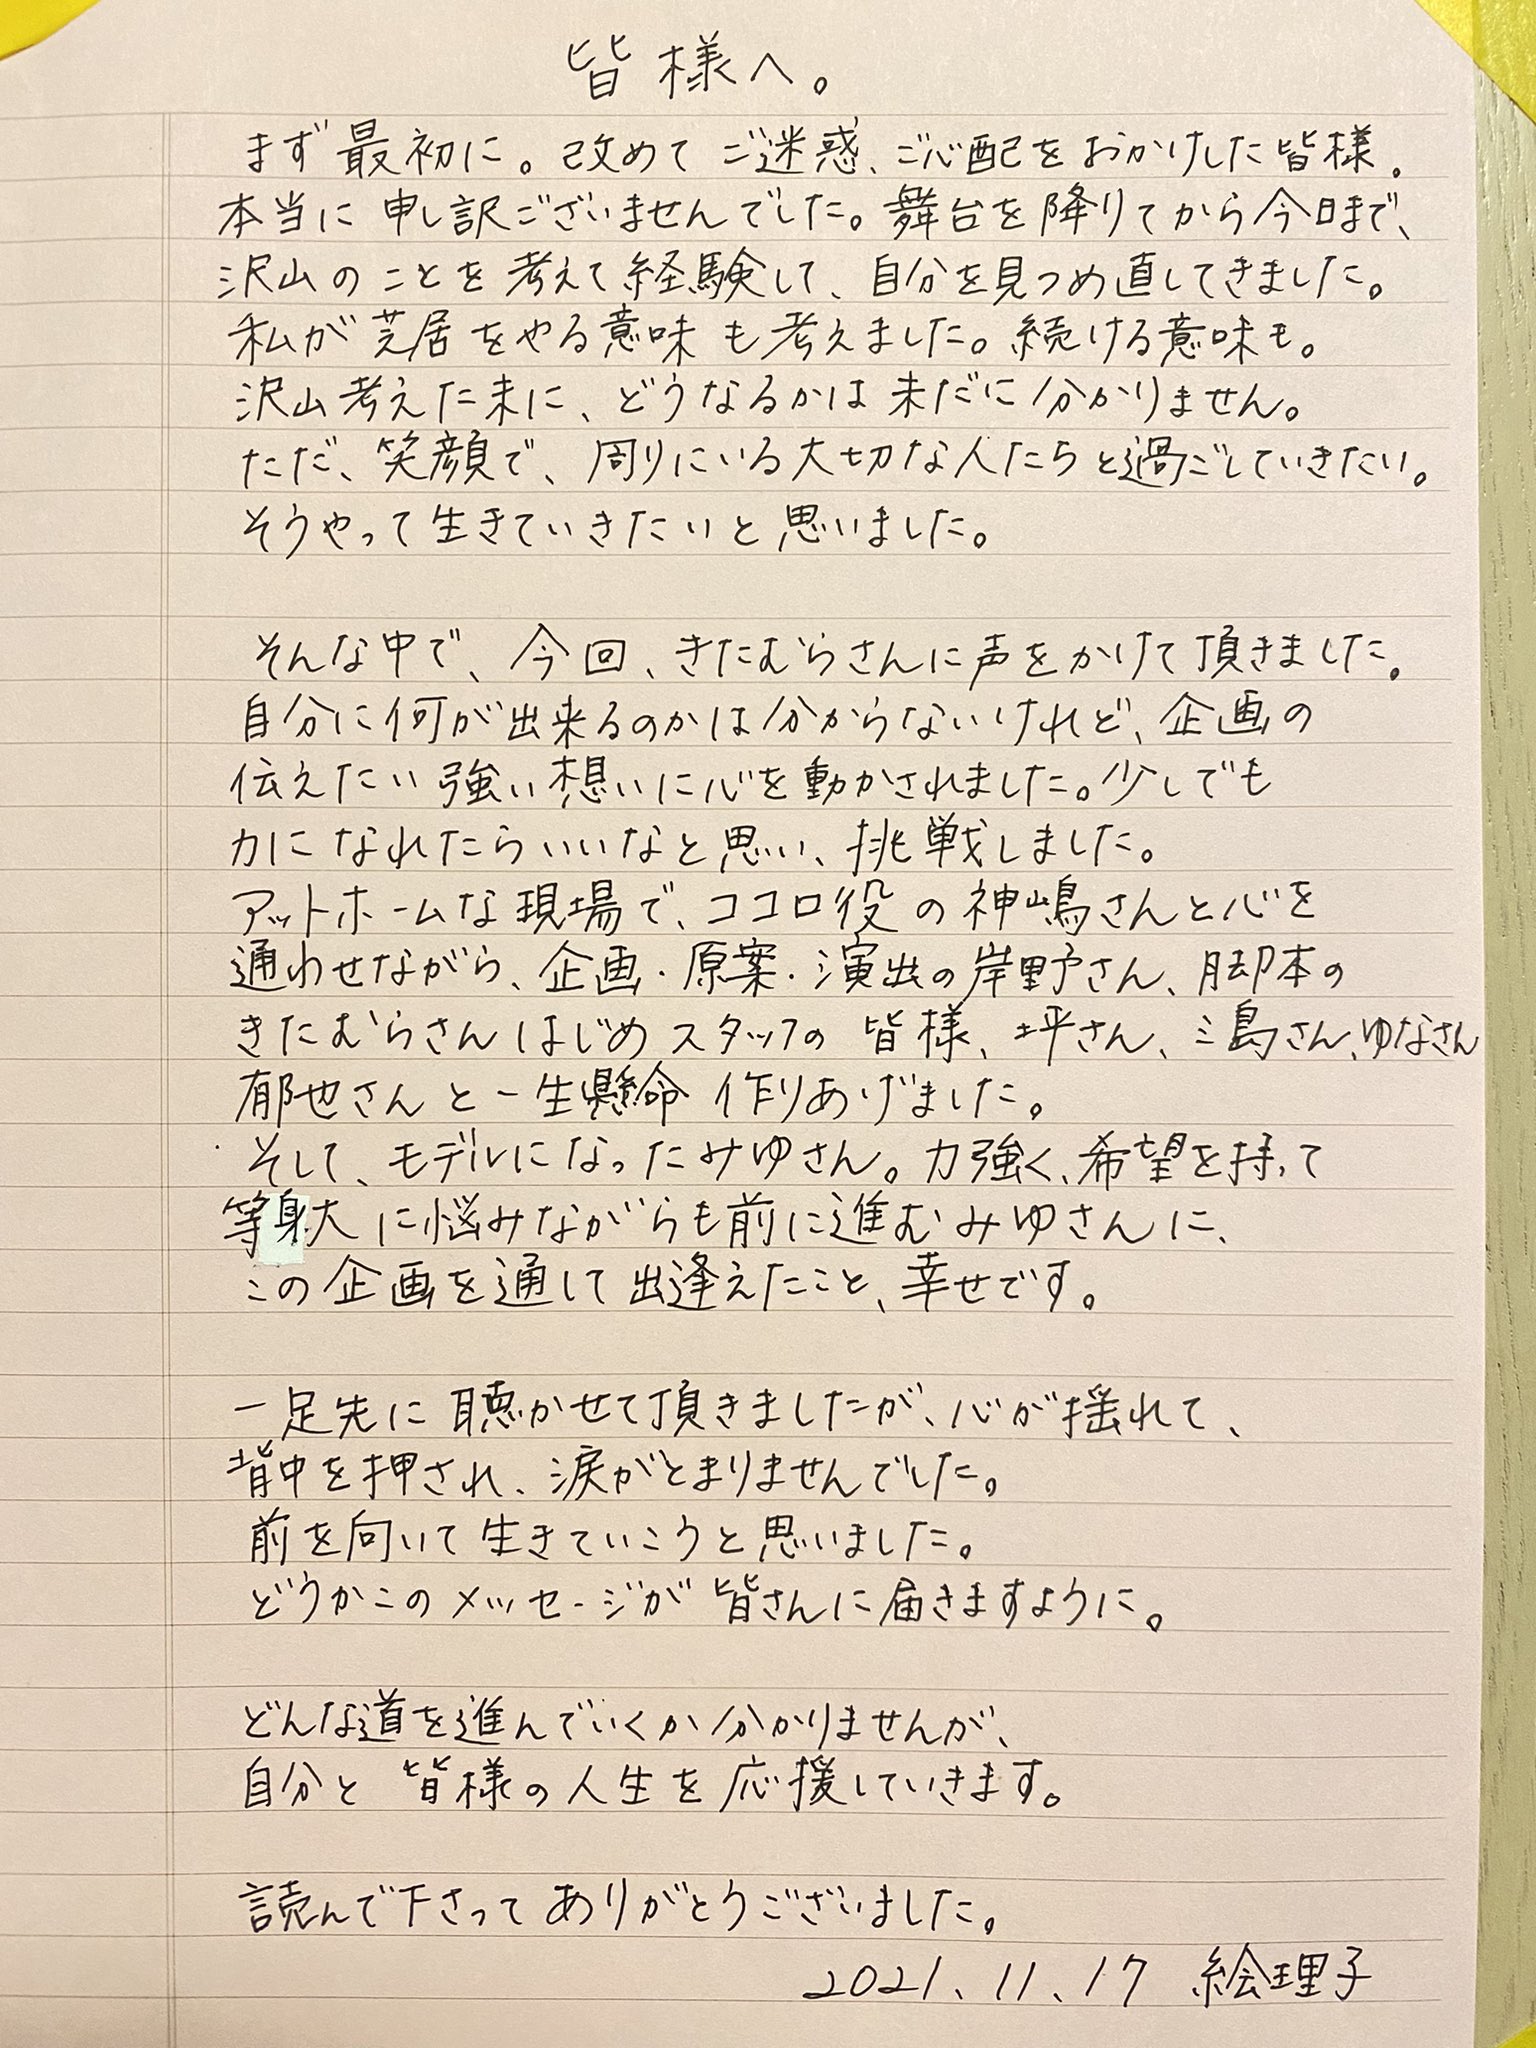 皆様へ。
まず最初に。改めてご迷惑、ご心配をおかけした皆様。
本当に申し訳ございませんでした。舞台を降りてから今日まで、
沢山のことを考えて経験して、自分を見つめ直してきました。
私が芝居をやる意味も考えました。続ける意味も。
沢山考えた末に、どうなるかは未だに分かりません。
ただ、笑顔で、周りにいる大切な人たちと過ごしていきたい。
そうやって生きていきたいと思いました。
そんな中で、今回、きたむらさんに声をかけて頂きました。
自分に何が出来るのかは分からないけれど、企画の
伝えたい強い想いに心を動かされました。少しでも
力になれたらいいなと思い、挑戦しました。
アットホームな現場で、ココロ役の神嶋さんと心を
通わせながら、企画・原案・演出の岸野さん、脚本の
きたむらさんはじめスタッフの皆様、坪さん、三島さん、ゆなさん
郁也さんと一生懸命作りあげました。
そして、モデルになったみゆさん。力強く、希望を持って
等身大に悩みながらも前に進むみゆさんに、
この企画を通して出逢えたこと、幸せです。
一足先に聴かせて頂きましたが、心が揺れて、
背中を押され、涙がとまりませんでした。
前を向いて生きていこうと思いました。
どうかこのメッセージが皆さんに届きますように。
どんな道を進んでいくか分かりませんが、
自分と皆様の人生を応援していきます。
読んで下さってありがとうございました。
2021.11.17 絵理子